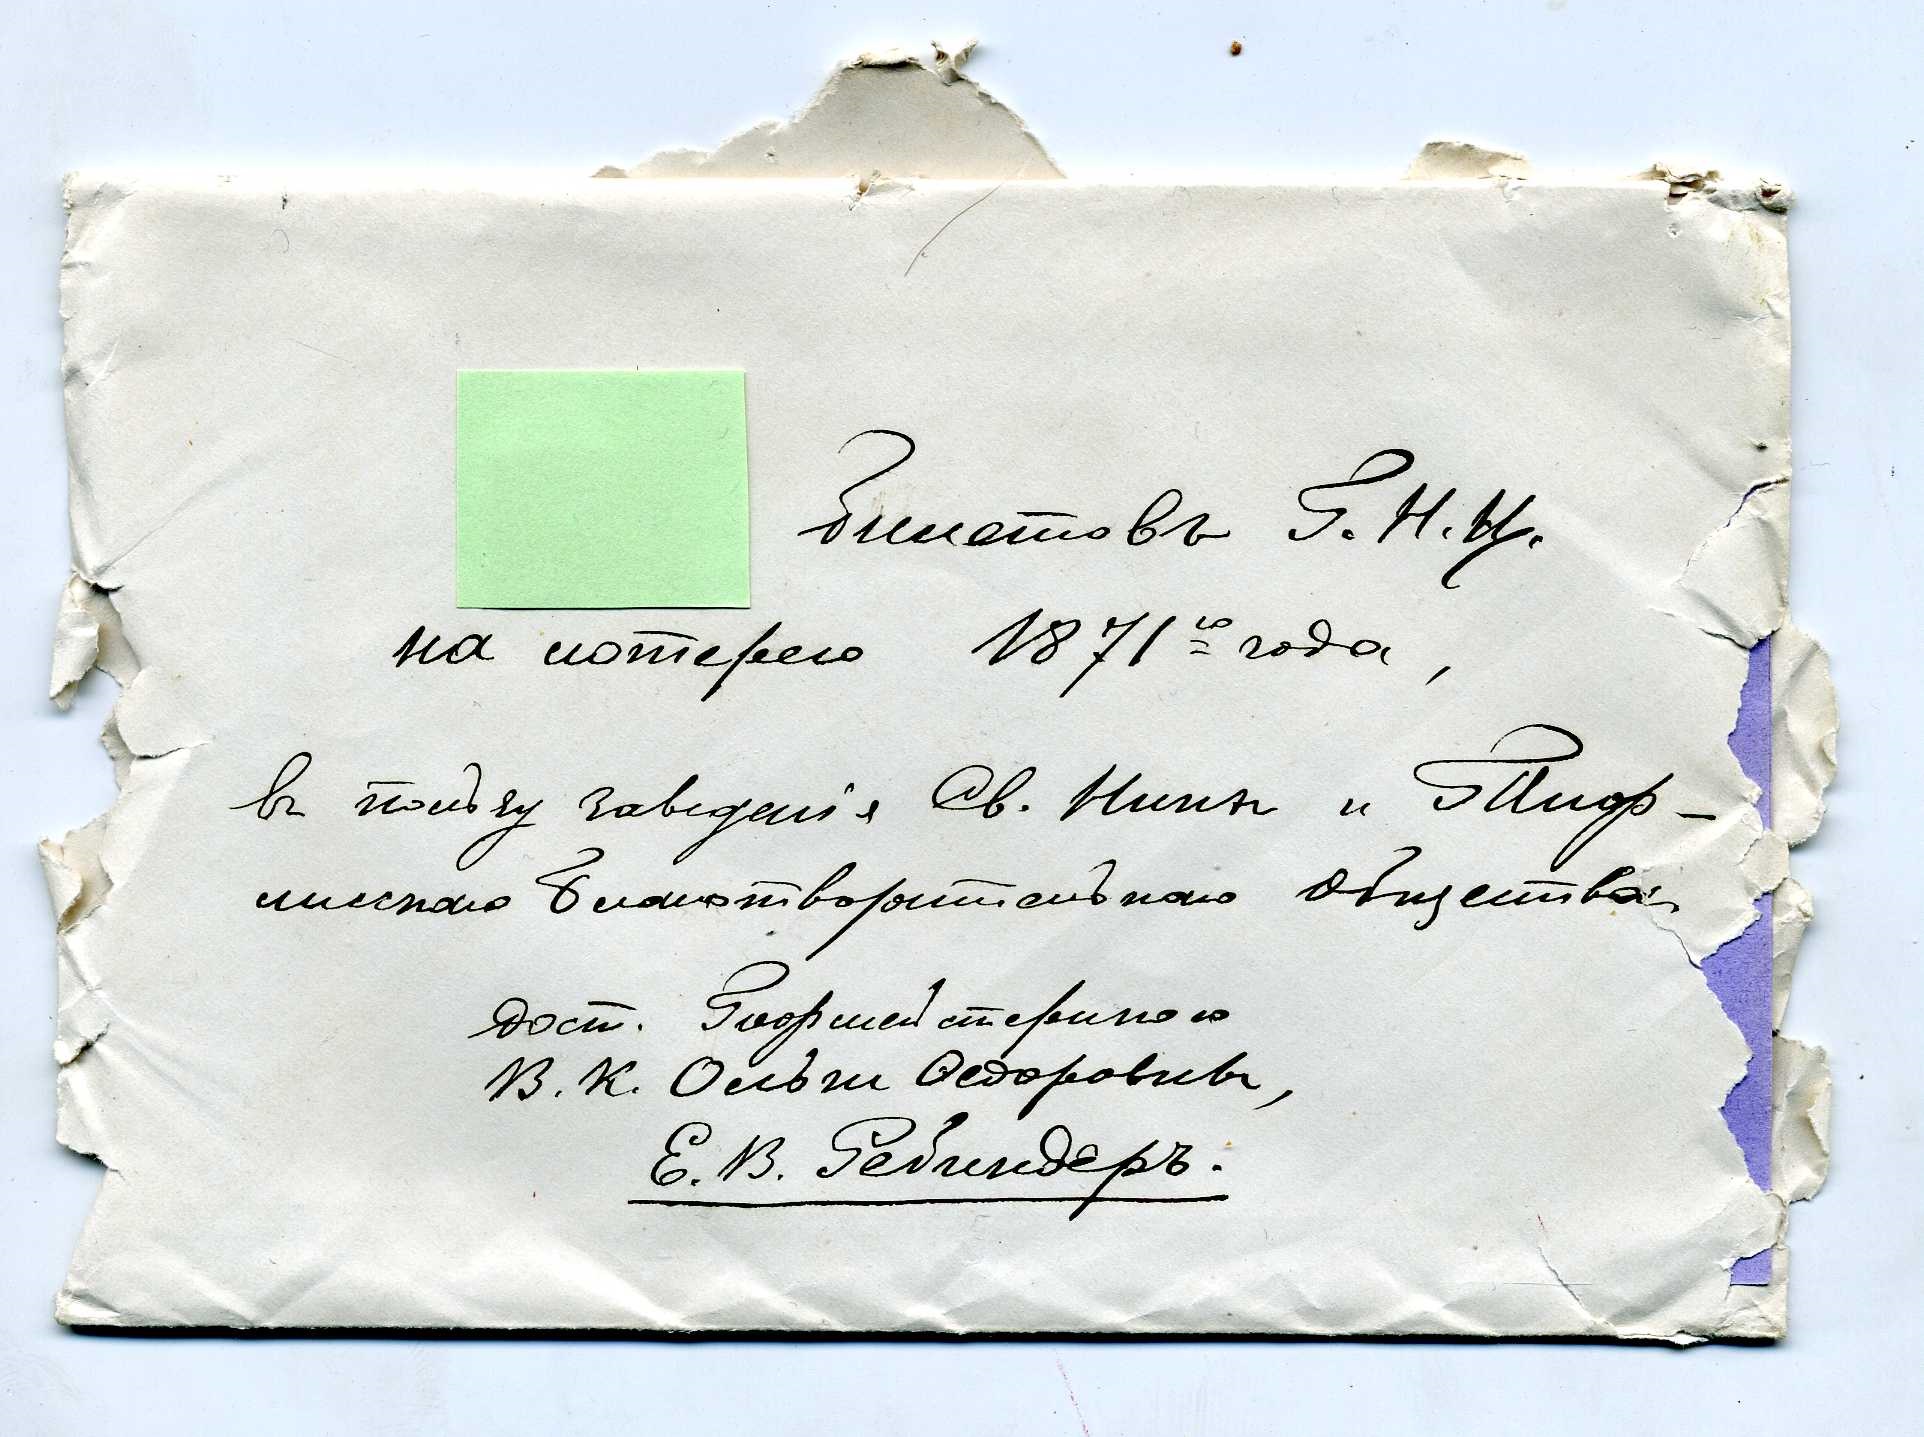 билетовъ Г. Н. И.
на лотерею 1871го года,
въ пользу заведенія Св. Нины и Тиф-
лисскаго Благотворительнаго Общества.
дост. Гофмейстериною
В. К. Ольги Ѳедоровны,
Е. В. Ребиндеръ.